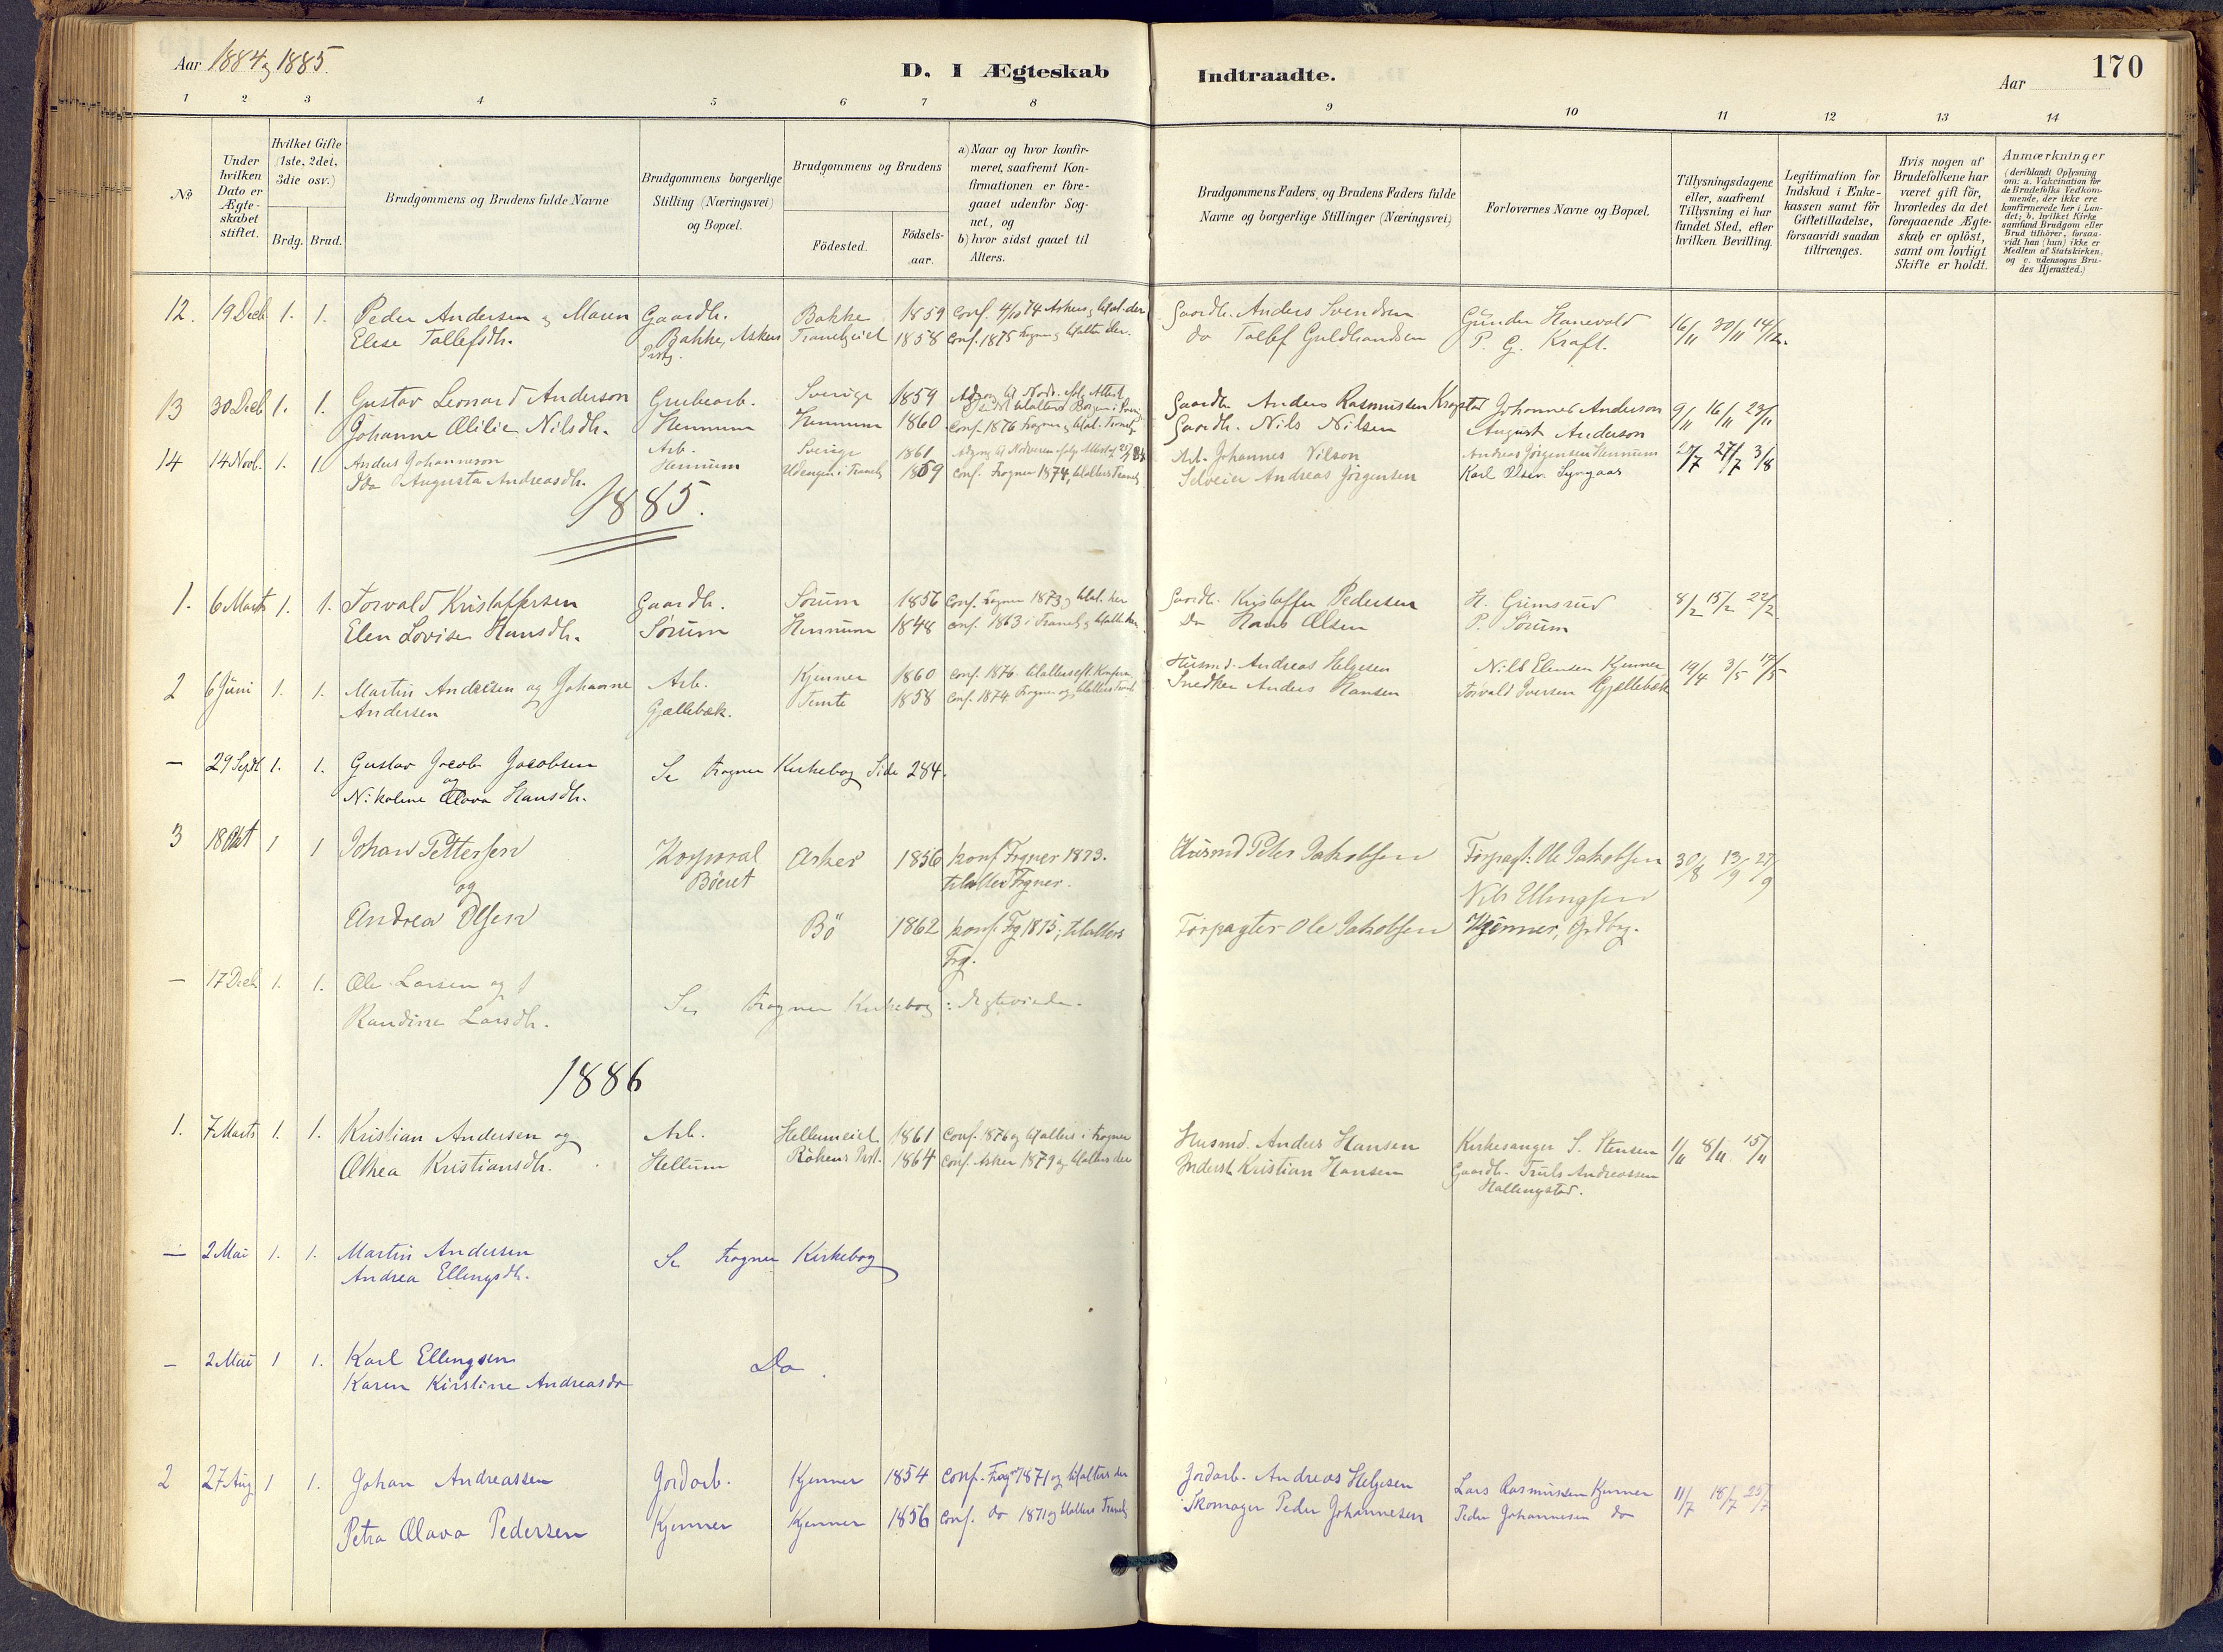 Aar 1884 og 1885.
D. I Ægteskab Indtraadte.
Aar
170
1 2 3 4 5 6 7 8 9 10 11 12 13 14
No
Under hvilken Dato er Ægte-skabet stiftet.
Hvilket Gifte (1ste, 2det, 3die osv.)
Brdg. Brud.
Brudgommens og Brudens fulde Navne
Brudgommens borgerlige Stilling (Næringsvei) og Bopæl.
Brudgommens og Brudens
Födested.
Födsels-aar.
a) Naar og hvor konfir-meret, saafremt Kon-firmationen er fore-gaaet udenfor Sog-net, og
b) hvor sidst gaaet til Alters.
Brudgommens Faders, og Brudens Faders fulde Navne og borgerlige Stillinger (Næringsvei)
Forlovernes Navne og Bopæl.
Tillysningsdagene eller, saafremt Tillysning ei har fundet Sted, efter hvilken Bevilling.
Legitimation for Indskud i Enke-kassen samt för Giftetilladelse, forsaavidt saadan tiltrænges.
Hvis nogen af Brudefolkene har været gift för, hvorledes da det foregaaende Ægte-skab er oplöst, samt om lovligt Skifte er holdt.
Anmærkninger (deriblandt Oplysning om: a. Vakcination for de Brudefolks Vedkom-mende, der ikke ere konfirmerede her i Lan-det; b. hvilket Kirke samfund Brudgom eller Brud tilhörer, forsaa-vidt han (hun) ikke er Medlem af Statskirken, og c. udensogns Bru-des Hjemsted.)
12. 19 Decb 1. 1. Peder Andersen og Maren Gaardb. Bakke 1859 Conf. 4/10 74 Asker og tilalt. der Gaardb. Anders Svendsen Gunder Hanevold 16/11 30/11 14/12.
Elese Tollefsdtr. Bakke, Asker Prstg. Tranebyeiet 1858 Conf. 1875 Frogner og tilalters der. do Tollef Guldbrandsen P. G. Kraft.
13 30 Decb 1. 1. Gustav Leonard Anderson Grubearb. Sverige 1859 Gaardb. Anders Rasmussen Johannes Anderson 9/11 16/11 23/11
Johanne Olilie Nilsdtr. Hennum Hennum 1860 Conf. 1876 Frogner og tilalt. Traneby Gaardb. Nils Nilsen August Anderson
14 14 Novb. 1. 1. Anders Johanneson Arb. Sverige 1861 Arb. Johannes Nilson Andreas Jörgensen Hennum 20/7 27/7 3/8
Ida Augusta Andreasdtr. Hennum i Traneby 1859 Conf. Frogner 1874, tilalters Traneby Selveier Andreas Jörgensen Karl Olsen
1885.
1. 6 Marts 1. 1. Torvald Kristoffersen Gaardb. Sörum 1856 Conf. Frogner 1873 og tilal. her Gaardb. Kristoffer Pedersen H. Grimsrud 8/2 15/2 22/2
Elen Lovise Hansdtr. Sörum Hennum 1848 Conf. 1863 i Traneby og tilalt. her Do Hans Olsen P. Sörum
2 6 Juni 1. 1. Martin Andersen og Johanne Arb. Kjenner 1860 Conf. 1876 tilalters eft. Konfirm. Husmd. Andreas Helgesen Nils Ellensen Kjenner 19/4 3/5 17/5
Andersen Gjællebæk. Temte 1858 Conf. 1874 Frogner og tilalters Traneby Snedker Anders Hansen Torvald Iversen Gjællebæk
— 29 Septb 1. 1. Gustav Jacob Jacobsen Se Frogner Kirkebog Side 284.
og
Nikoline Olava Hansdtr.
3 18 Okt 1 1 Johan Pettersen Korporal Asker 1856 konf. Frogner 1873. Husmd Peter Jakobsen Forpagt. Ole Jakobsen 30/8 13/9 27/9
og Böeiet tilalters Frogner. Nils Ellingsen
Andrea Olsen Bö 1862 konf. Frg 1875; tilalters Frg. Forpagter Ole Jakobsen Kjenner, Grdbrg.
— 17 Decb 1. 1. Ole Larsen og
Randine Larsdtr. Se Frogner Kirkebog: Ægteviede.
1886
1. 7 Marts 1. 1. Kristian Andersen og Arb. Hellumeiet 1861 Conf. 1876 og tilalters i Frogner Husmd. Anders Hansen Kirkesanger S. Stensen 1/11 8/11 15/11
Othea Kristiansdtr. Hellum Rökens Prst. 1864 Conf. Asker 1879 og tilalters der Inderst Kristian Hansen Gaardb. Truls Andreassen
Hallingstad.
— 2 Mai 1. 1. Martin Andersen Se Frogner Kirkebog
Andrea Ellingsdtr.
— 2 Mai 1 1. Karl Ellingsen Do
Karen Kirstine Andreasdtr
2 27 Aug 1 1. Johan Andreassen Jordarb. Kjenner 1854 Conf. Frogner 1871 og tilalters der Jordarb. Andreas Helgesen Lars Rasmussen Kjenner 11/7 18/7 25/7
Petra Olava Pedersen Kjenner Kjenner 1856 Conf. do 1871 og tilalters Traneby Skomager Peder Johannesen Peder Johannesen do